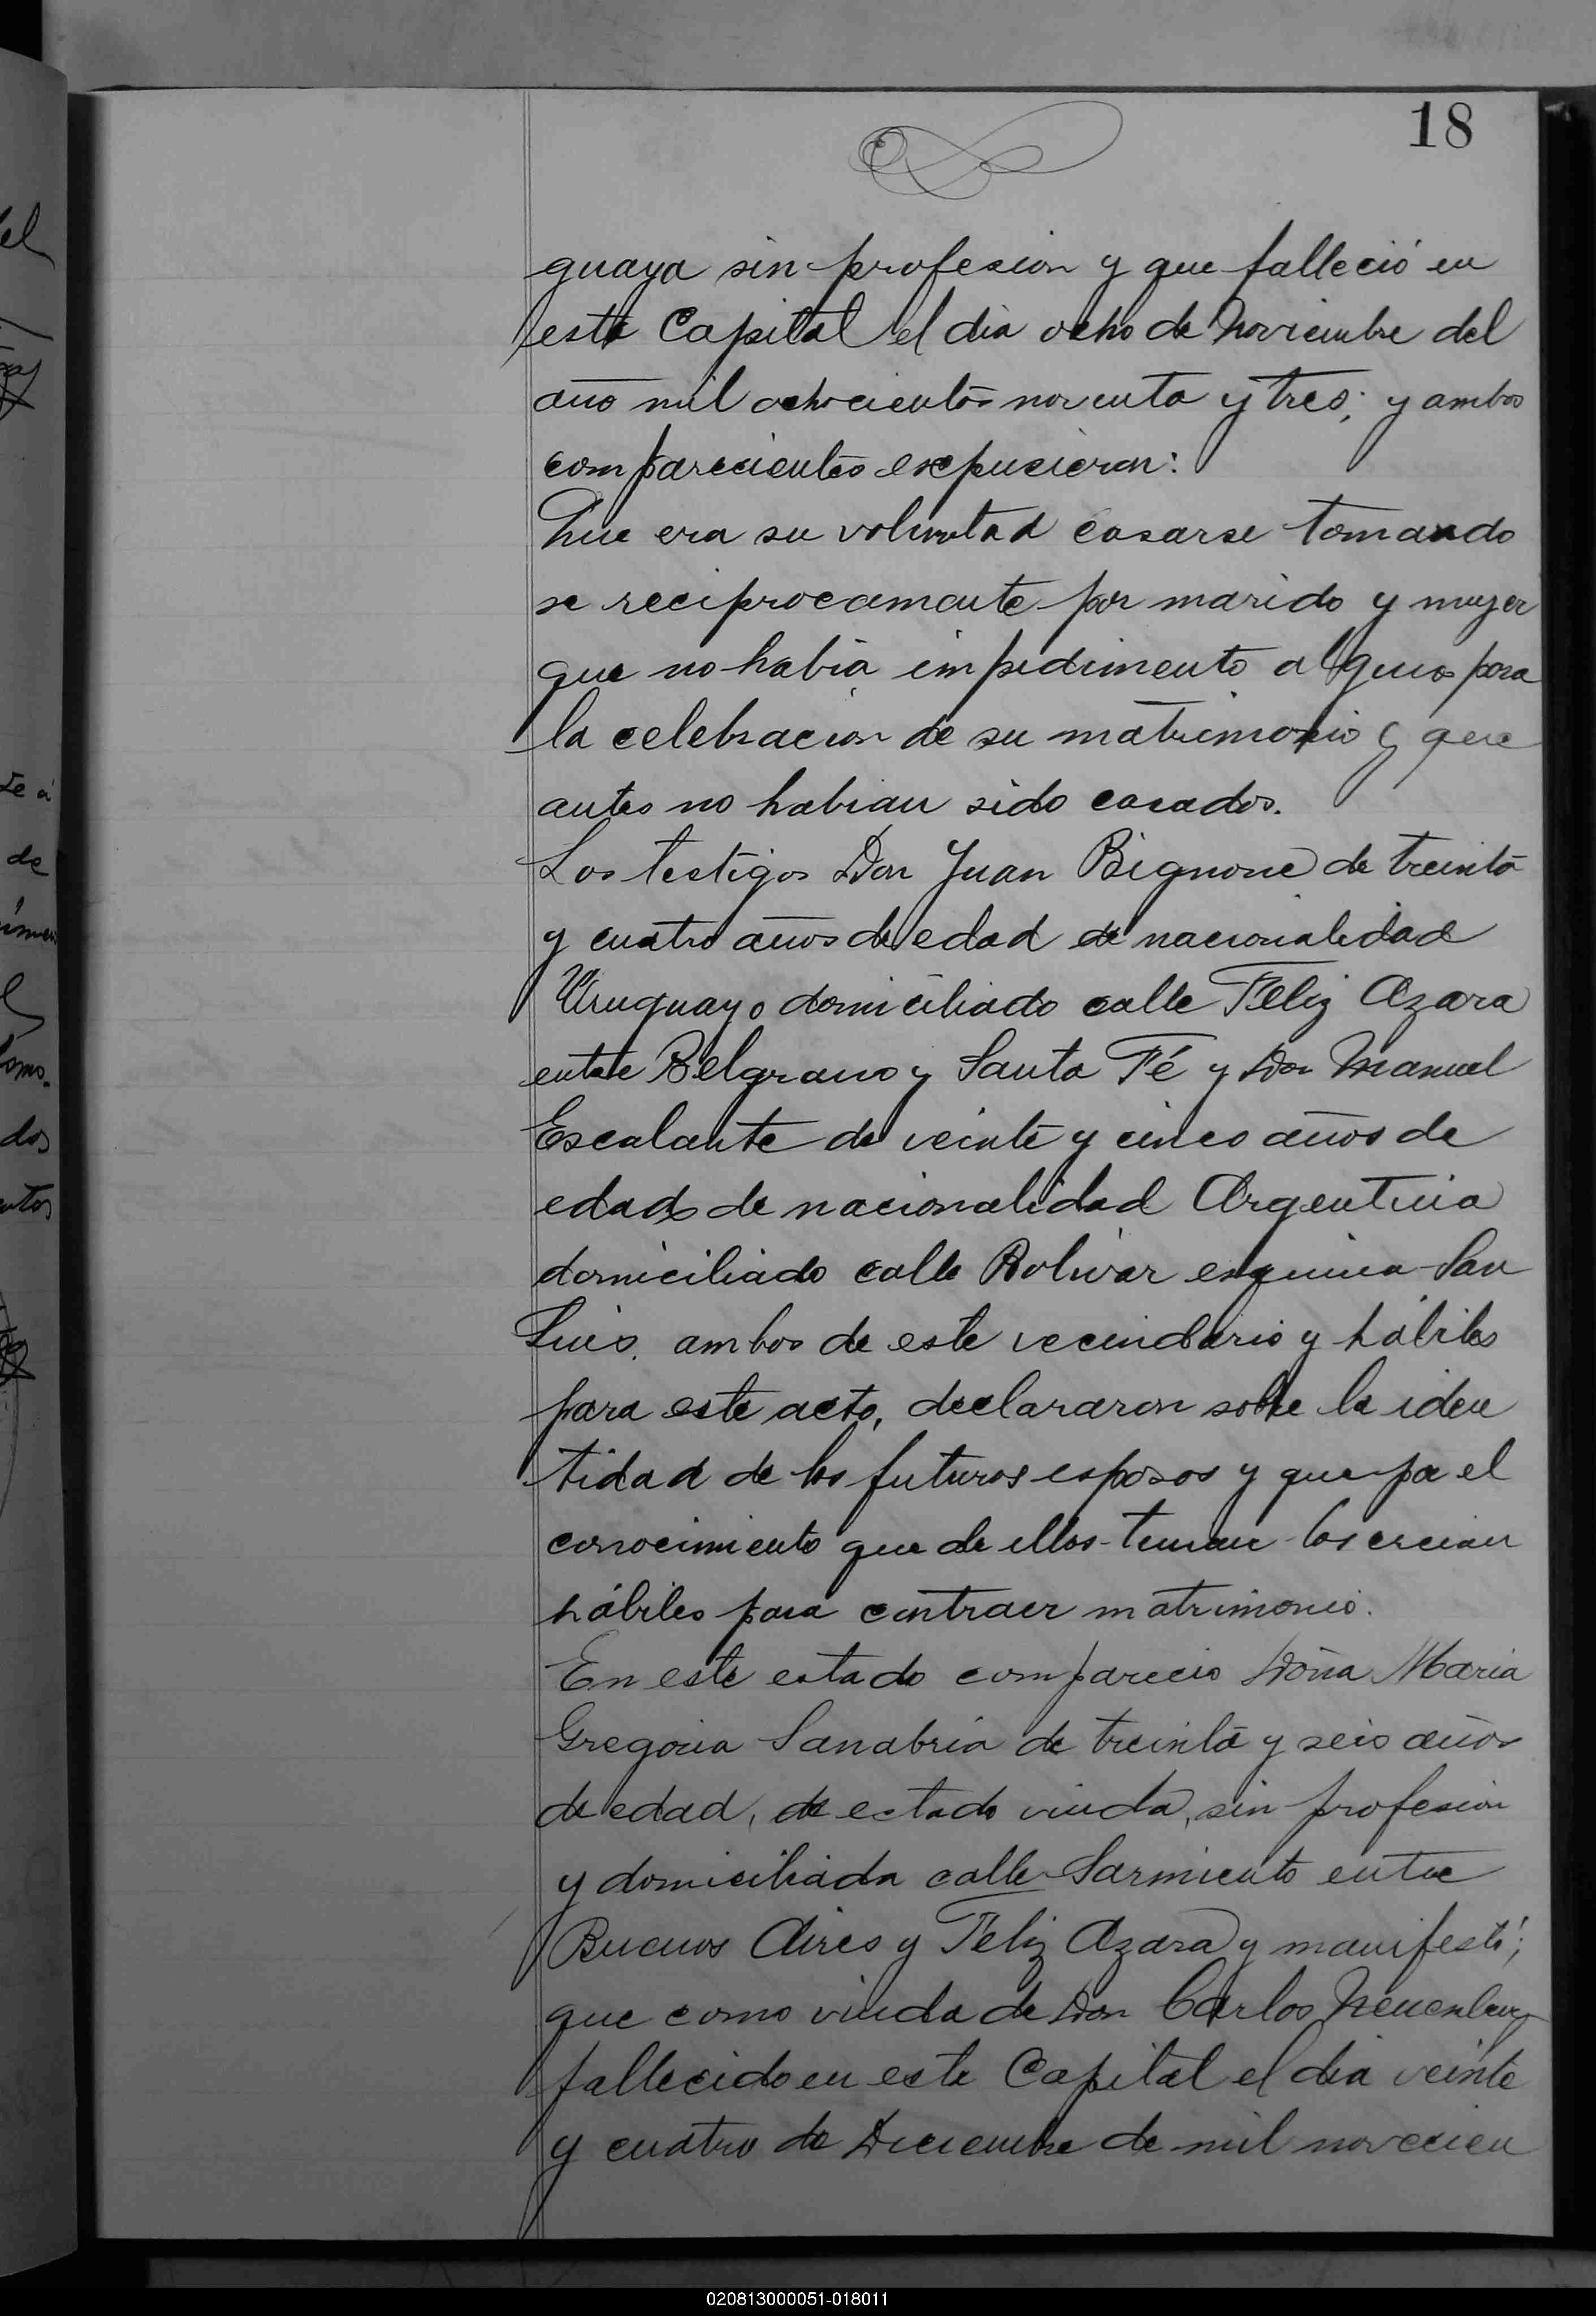 18
guaya sin profesion y que falleció en
esta Capital el dia ocho de Noviembre del
año mil ochocientos noventa y tres; y ambos
comparecientes expusieron:
Que era su voluntad casarse tomando
se reciprocamente por marido y mujer
que no habia impedimento alguno para
la celebracion de su matrimonio y que
antes no habian sido casados.
Los testigos Don Juan Bignone de treinta
y cuatro años de edad de nacionalidad
Uruguayo domiciliado calle Feliz Azara
entre Belgrano y Santa Fé y Don Manuel
Escalante de veinte y cinco años de
edad de nacionalidad Argentina
domiciliado calle Bolivar esquina San
Luis, ambos de este vecindario y hábiles
para este acto, declararon sobre la iden
tidad de los futuros esposos y que por el
conocimiento que de ellos tenian los creian
hábiles para contraer matrimonio.
En este estado comparecio Doña Maria
Gregoria Sanabria de treinta y seis años
de edad, de estado viuda, sin profesion
y domiciliada calle Sarmiento entre
Buenos Aires y Feliz Azara y manifestó;
que como viuda de Don Carlos
fallecido en esta Capital el dia veinte
y cuatro de Diciembre de mil novecien
020813000051-018011